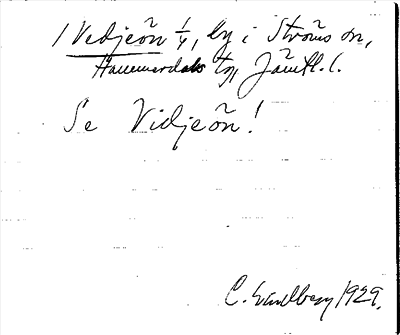 1 Vedjeön 1/4, by i Ströms sn,
Hammerdals tg, Jämtl. l.
Se Vidjeön!
C. Lindberg 1929.